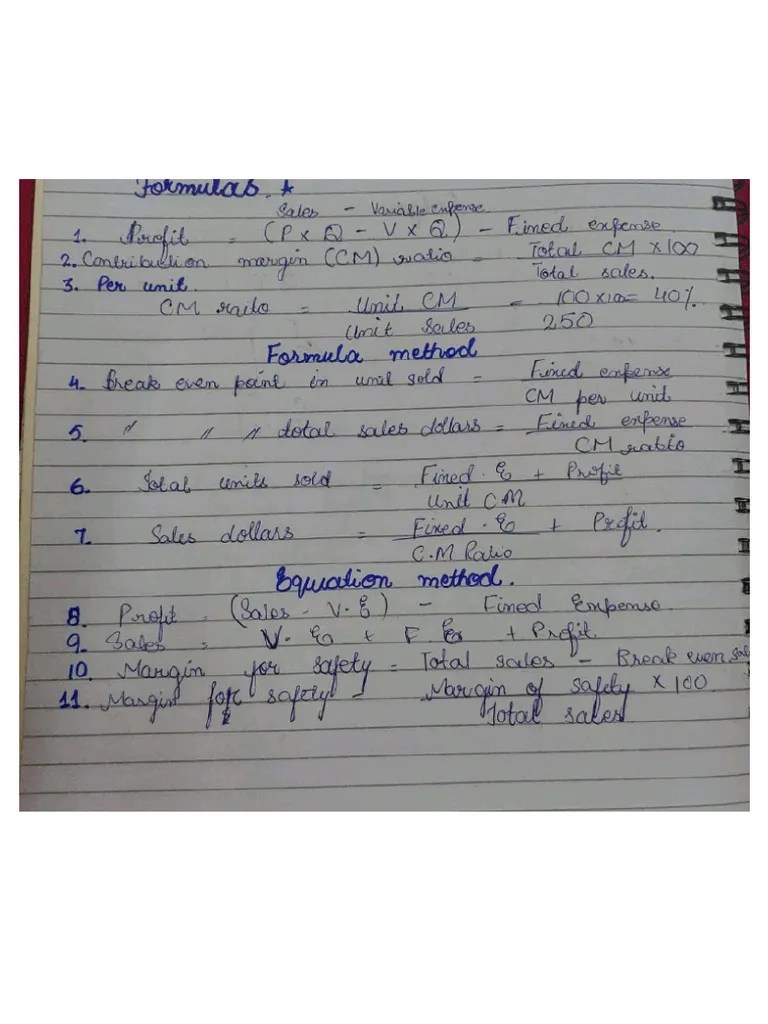 Formulas. ★
Sales - Variable expense
1. Profit = (P x Q - V x Q) - Fixed expense
2. Contribution margin (CM) ratio = Total CM x 100
Total sales.
3. Per unit.
CM raito = Unit CM = 100 x 100 = 40%
Unit Sales 250
Formula method
4. Break even point in unit sold = Fixed expense
CM per unit
5. " " " total sales dollars = Fixed expense
CM ratio
6. Total units sold = Fixed . E + Profit
Unit CM
7. Sales dollars = Fixed . E + Profit.
C.M Ratio
Equation method.
8. Profit = (Sales - V. E) - Fixed Expense.
9. Sales = V. E + F. E + Profit
10. Margin for safety = Total sales - Break even
11. Margin for safety = Margin of safety x 100
Total sales